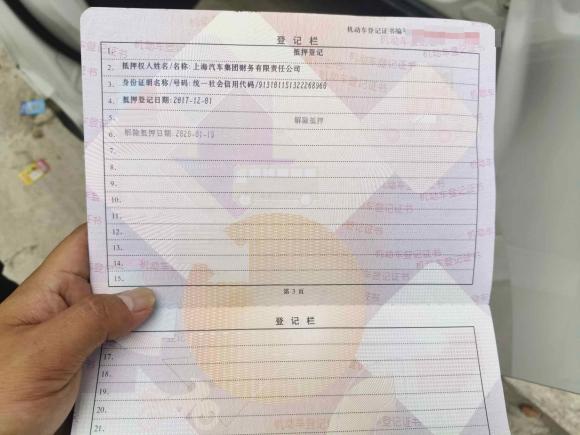 机动车登记证书编号
登记栏
1. 抵押登记
2. 抵押权人姓名/名称:上海汽车集团财务有限责任公司
3. 身份证明名称/号码:统一社会信用代码/
4. 抵押登记日期:2017-12-01
5. 解除抵押
6. 解除抵押日期:2020-01-19
7.
8.
9.
10.
11.
12.
13.
14.
15.
第 3 页
登记栏
17.
18.
19.
20.
21.
机动车登记证书
机动车登记证书
机动车登记证书